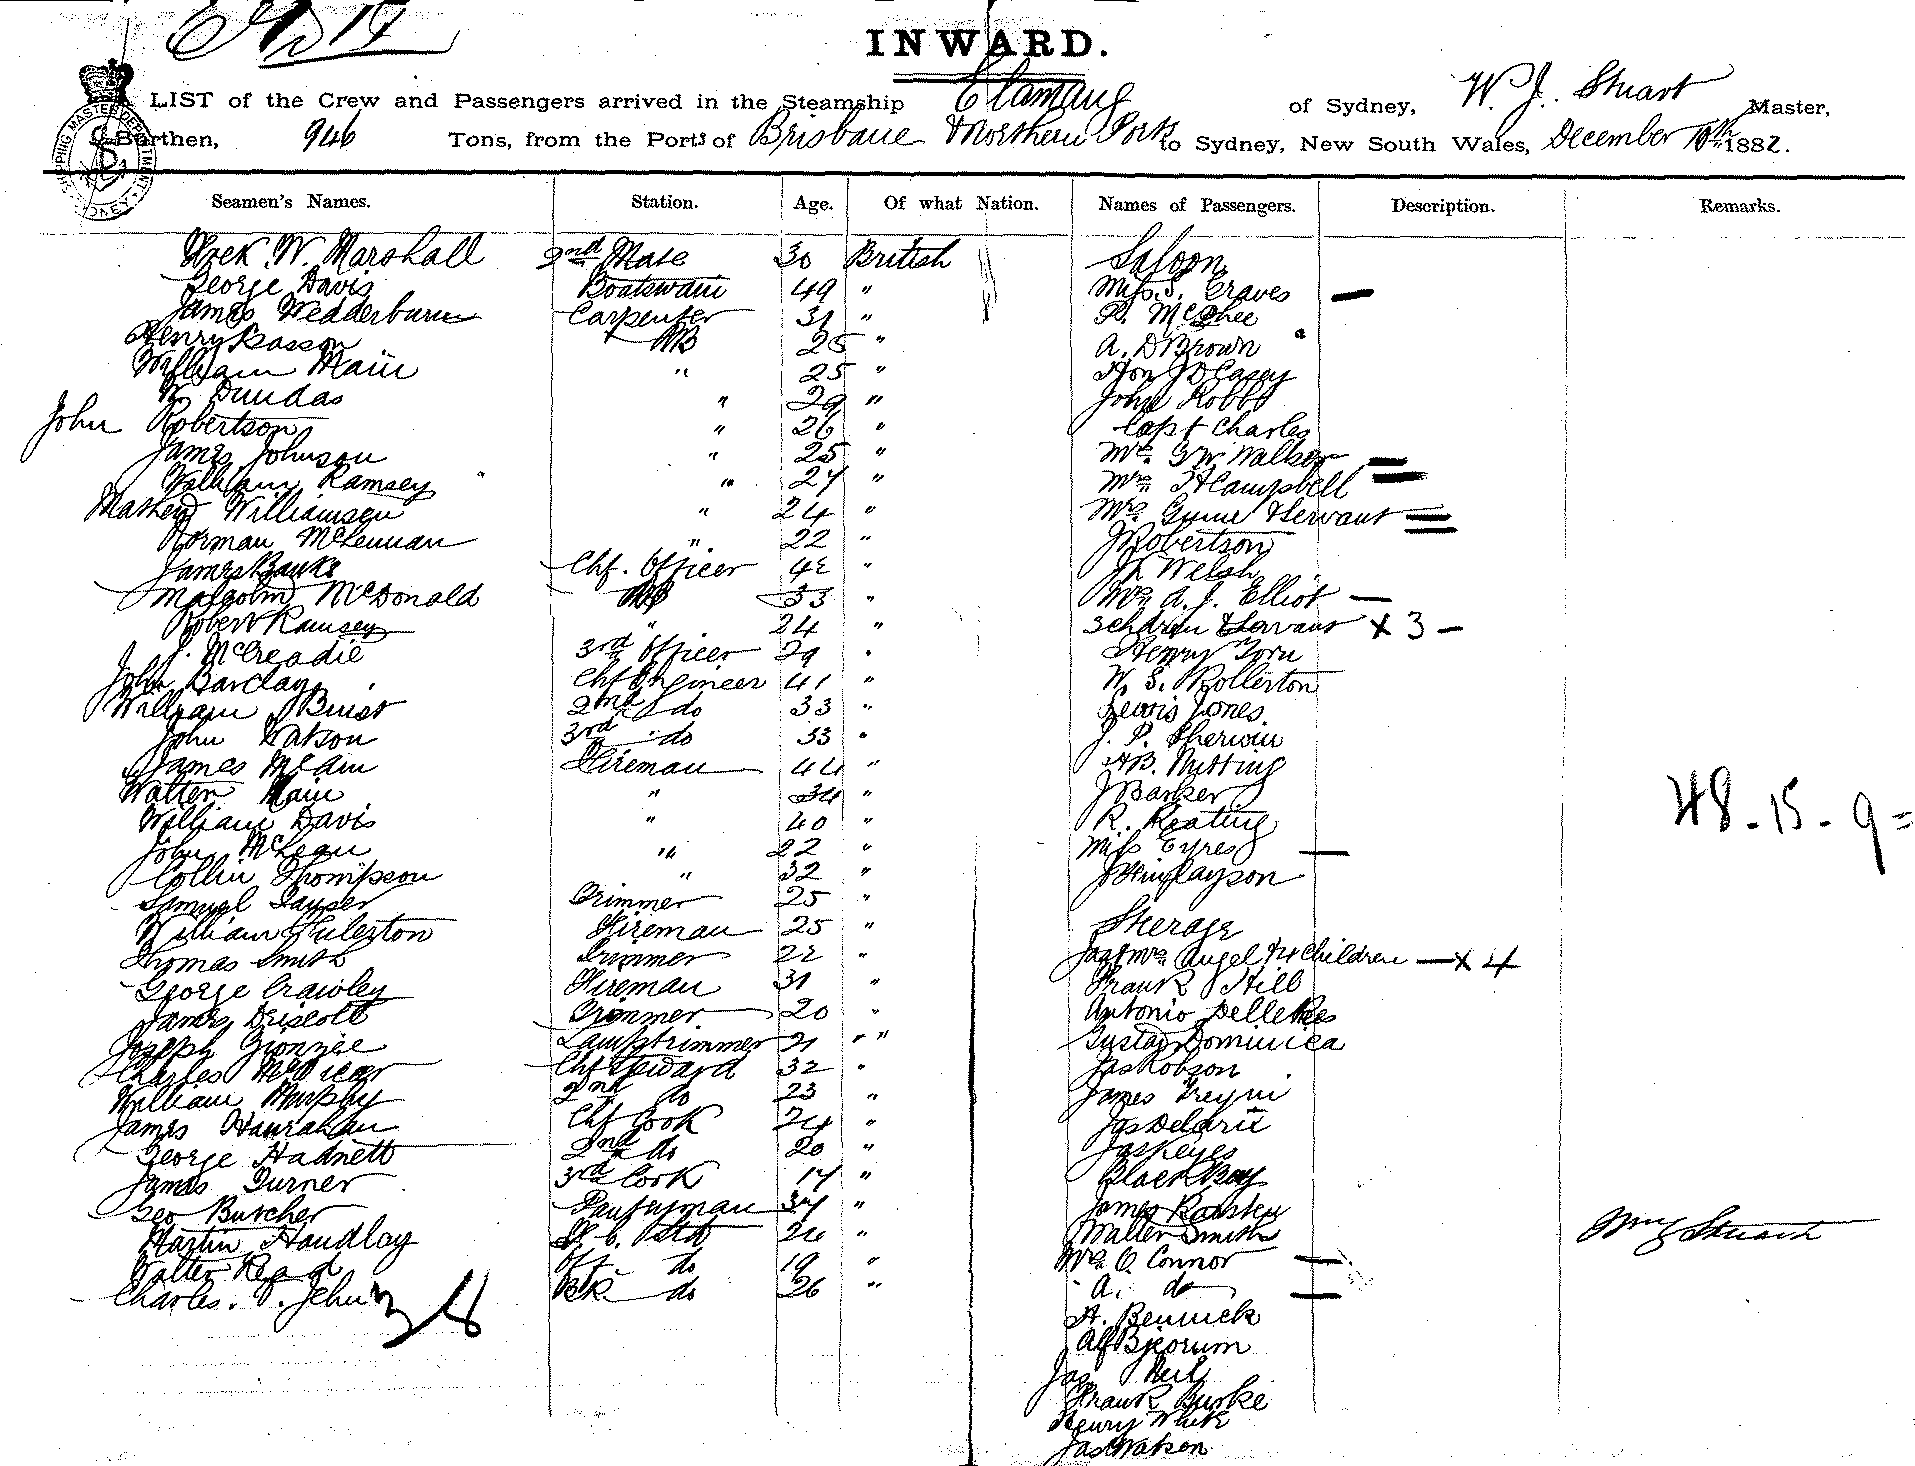 INWARD.
LIST of the Crew and Passengers arrived in the Steamship of Sydney, W. J. Stuart Master,
Burthen, 946 Tons, from the Ports of Brisbane & Northern Ports to Sydney, New South Wales, December 10th 1882.
Seamen's Names. Station. Age. Of what Nation. Names of Passengers. Description. Remarks.
W. Marshall 2nd Mate 30 British Saloon
George Davis Boatswain 49 " Miss S. Graves —
James Wedderburn Carpenter 31 " McPhee
Henry AB 25 " A. D Brown
William Main " 25 " Hon J D Casey
W Dundas " 29 " John Robb
John Robertson " 26 " Capt Charles
James Johnson " 25 " Mrs. G W Walker —
William Ramsey " 27 " Mrs H Campbell —
Mathew Williamson " 24 " Mrs & Servant =
Norman McLennan " 22 " J Robertson
James Banks Chf. Officer 42 " Welsh
Malcolm McDonald AB 33 " Mrs A. J. Elliot —
Robert Ramsey " 24 " 3 children & Servant x 3 —
J. McCreadie 3rd Officer 29 " Henry
John Barclay Chf Engineer 41 " W. S. Rollerton
William Buist 2nd do 33 " Lewis Jones
John Watson 3rd do 33 " J. P. Sherwin
James McCain Fireman 44 " H B. Nutting
Walter Main " 34 " J Barker
William Davis " 40 " R. Keating
John McLean " 22 " Miss Eyres —
Collin Thompson " 32 " J Finlayson
Samuel Trimmer 25 "
William Fulerton Fireman 25 " Steerage
Thomas Smith Trimmer 22 " Jas & Mrs Angel & 4 Children — x 4
George Crawley Fireman 31 " Frank Hill
James Driscoll Trimmer 20 " Antonio
Joseph Lamptrimmer 21 " " Gustav Dominica
Charles McVicar Chf Steward 32 " Jas Robson
William Murphy 2nd do 23 " James
James Hanrahan Chf Cook 24 "
George Hadnett 2nd do 20 " Jas Keyes
James Turner 3rd Cook 17 " Black Boy
Geo Butcher Pantryman 37 " James
Martin Handlay 26 " Walter Smith
Walter Read do 19 " Mrs O Connor —
Charles. P. Jehu do 26 " A. do —
38
A. Bennick
Alf
Jas
Frank Burke
Henry White
Jas Watson
48 - 15 - 9 =
Wm J Stuart